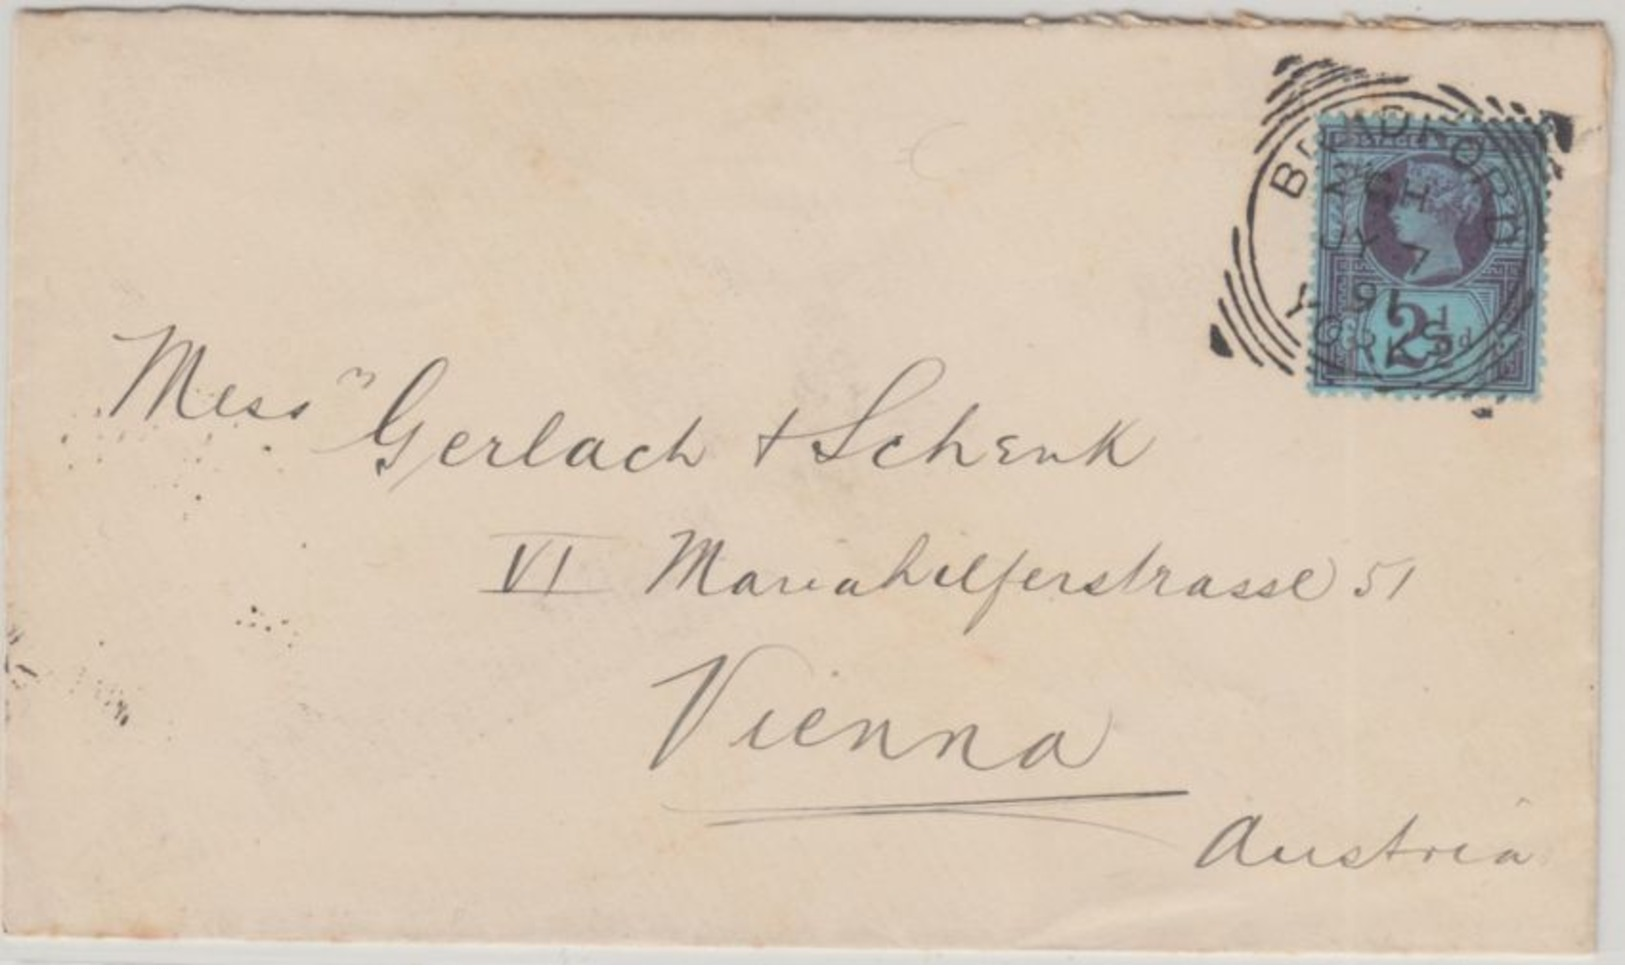 BRADFORD
JY 7
91
YORKS
2½d
Mess rs Gerlach + Schenk
VI Mariahilferstrasse 51
Vienna
Austria